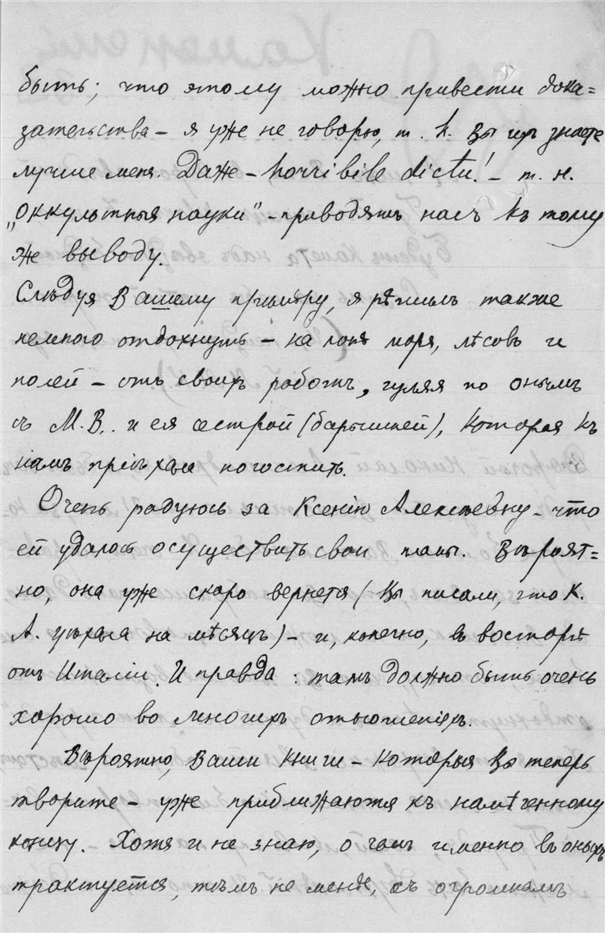 быть; что этому можно привести дока=
зательства – я уже не говорю, т. к. Вы их знаете
лучше меня. Даже – horribile dictu! – т. н.
„оккультныя науки" – приводятъ насъ къ тому
же выводу.
Слѣдуя Вашему примѣру, я рѣшилъ также
немного отдохнуть – на лонѣ моря, лѣсовъ и
полей – отъ своихъ работъ, гуляя по онымъ
съ М.В. и ея сестрой (барышней), которая къ
намъ пріѣхала погостить.
Очень радуюсь за Ксенію Алексѣевну – что
ей удалось осуществить свои планы. Вѣроят=
но, она уже скоро вернется (Вы писали, что К.
А. уѣхала на мѣсяцъ) – и, конечно, въ восторгѣ
отъ Италіи. И правда: тамъ должно быть очень
хорошо во многихъ отношеніяхъ.
Вѣроятно, Ваши книги – которыя Вы теперь
творите – уже приближаются къ намѣченному
концу. Хотя и не знаю, о чемъ именно въ оныхъ
трактуется, тѣмъ не менѣе, съ огромнымъ